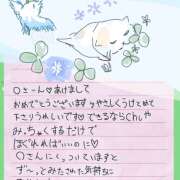 ○さーん♡あけまして
おめでとうございます♡やさしくうけとめて
下さりうれしいです♡できるならChuや
みっちゃくするだけで
ほぐれればいいのに♡
○さんにくっついていますと
ず〜ってみたされた気持ちに